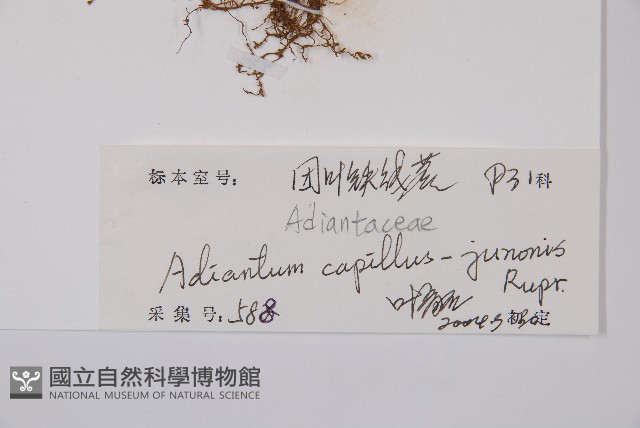 标本室号: 团叶铁线蕨 P31科
Adiantaceae
Adiantum capillus-junonis
Rupr.
采集号: 588 初定
國立自然科學博物館
NATIONAL MUSEUM OF NATURAL SCIENCE